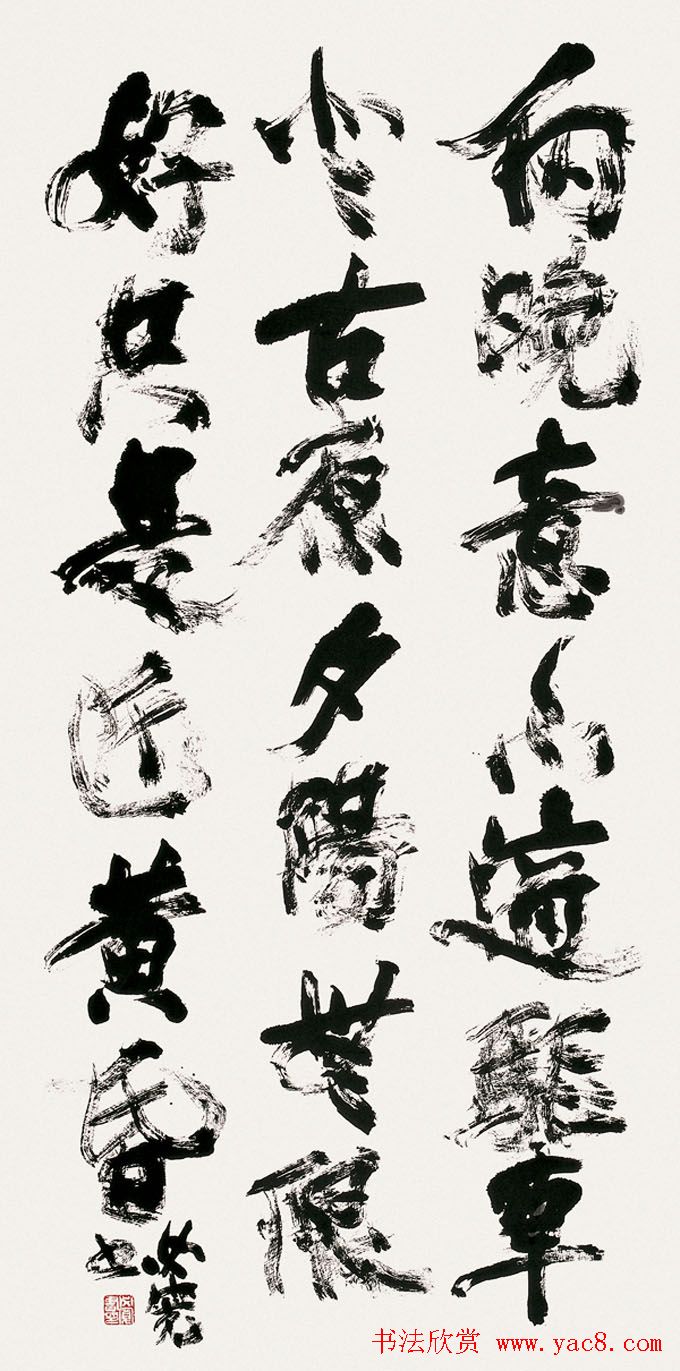 向晚意不適驅車
登古原夕陽無限
好只是近黄昏
书法欣赏 www.yac8.com